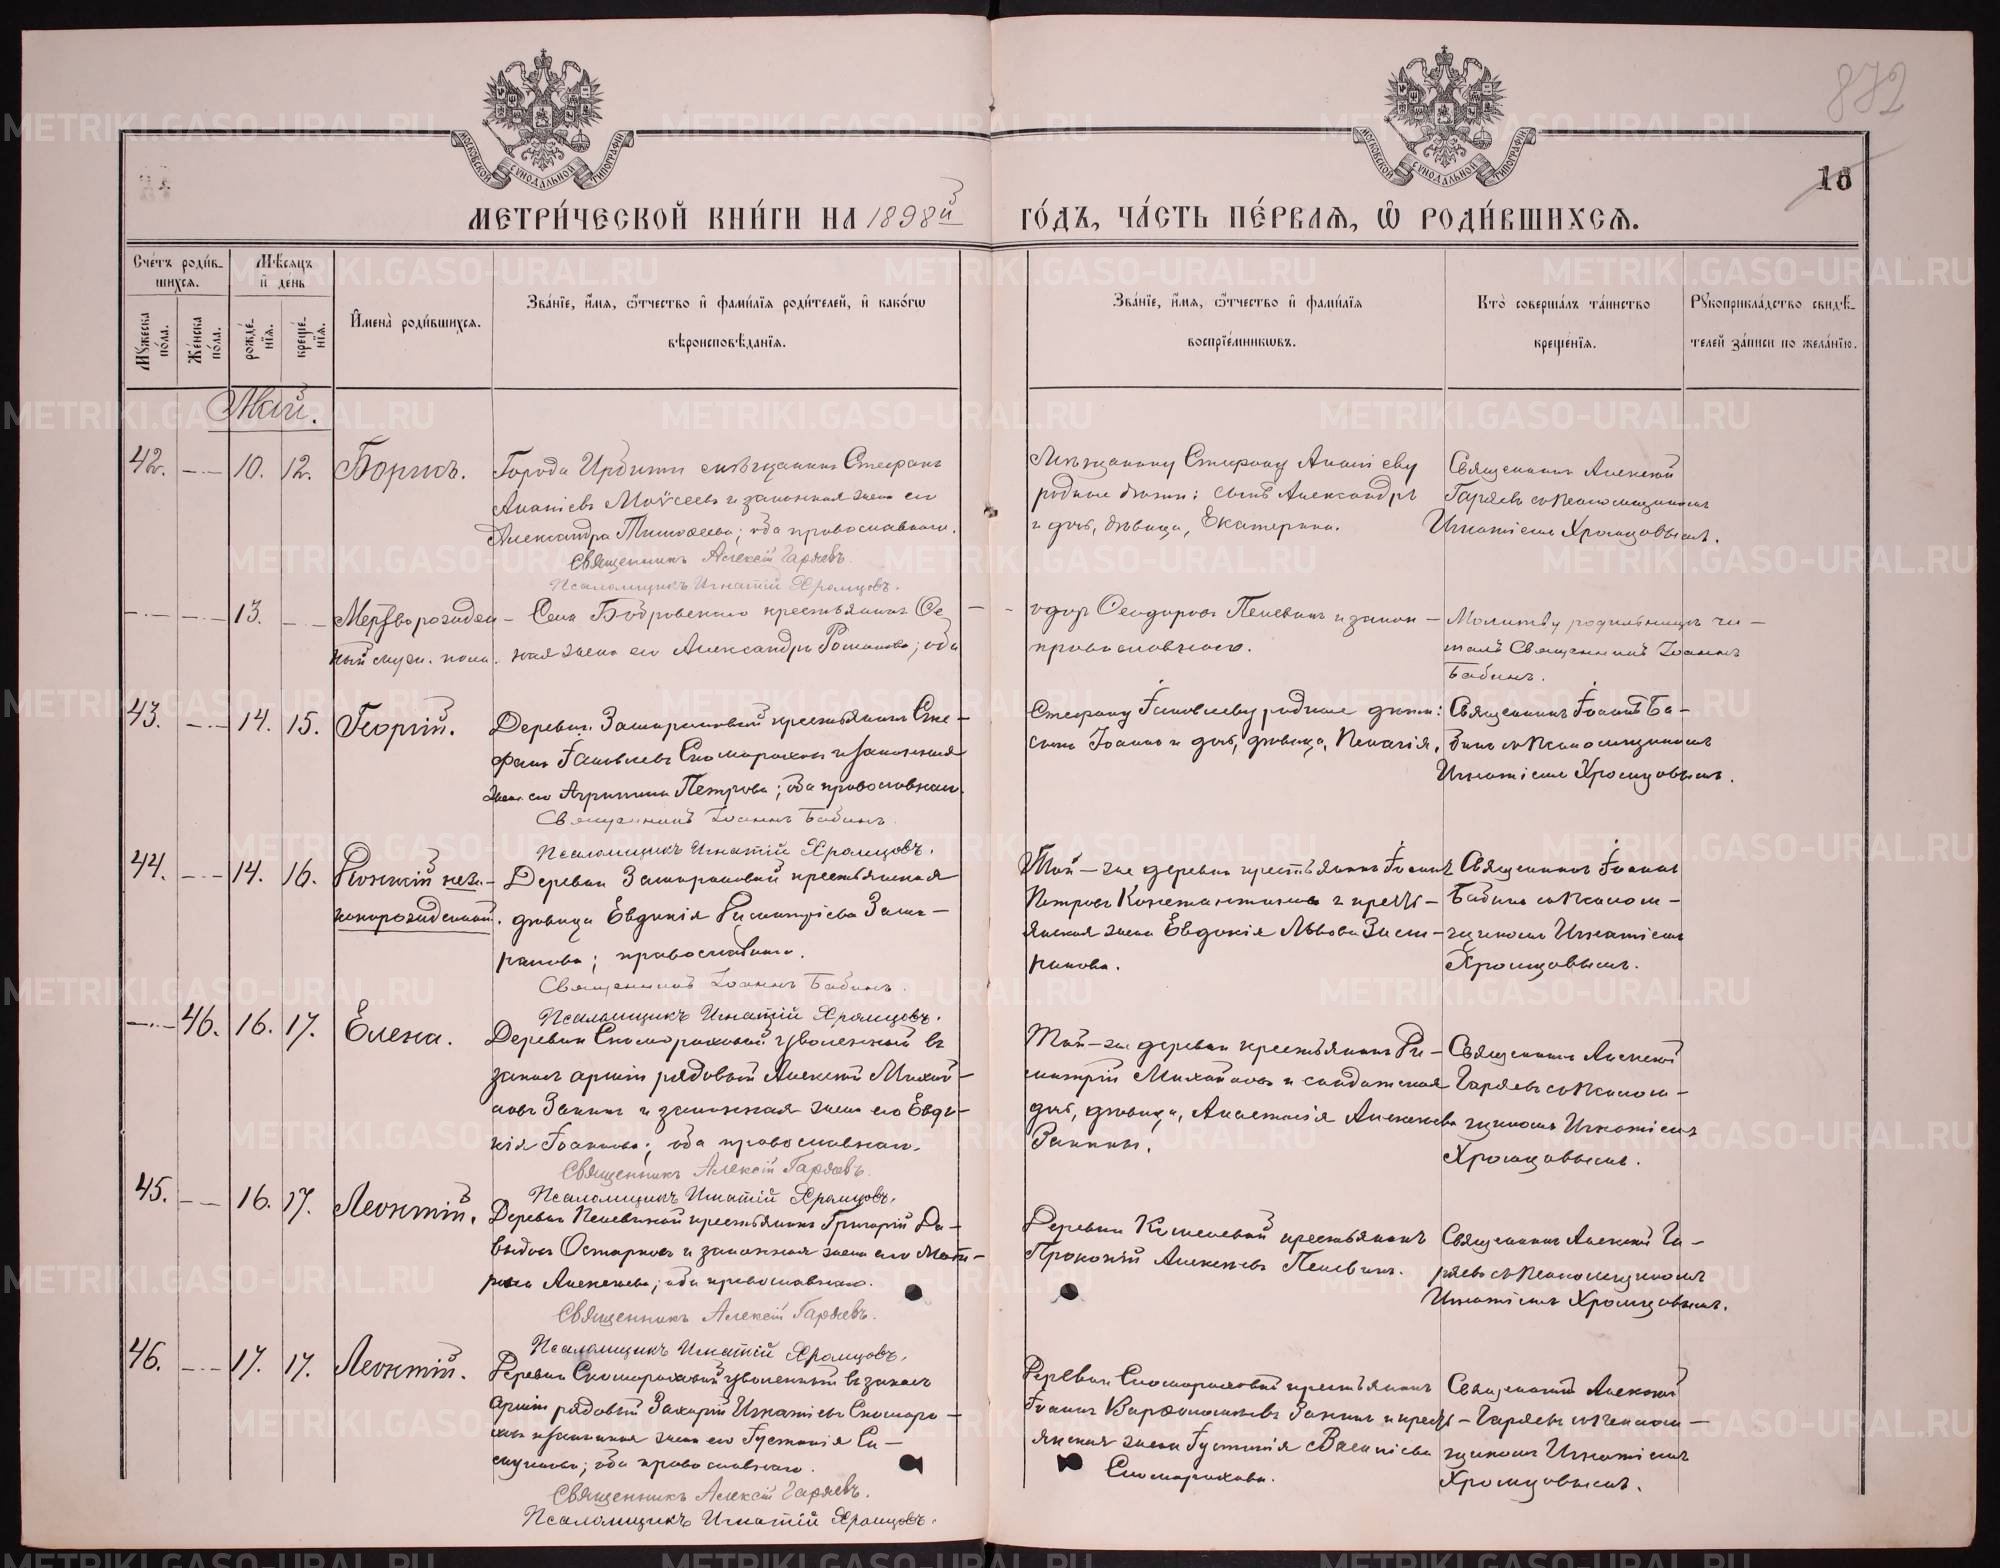 882
16
МОСКОВСКОЙ СѴНОДАЛЬНОЙ ТИПОГРАФІИ
МОСКОВСКОЙ СѴНОДАЛЬНОЙ ТИПОГРАФІИ
МЕТРИ́ЧЕСКОЙ КНИ́ГИ НА 1898й ГО́ДЪ, ЧА́СТЬ ПЕ́РВАѦ, Ѡ РОДИ́ВШИХСѦ.
Сче́тъ роди́вшихсѧ.
Мѣ́сѧцъ и де́нь
Мꙋжеска по́ла.
Же́нска по́ла.
рожде́нїѧ.
креще́нїѧ.
Имена̀ роди́вшихсѧ.
Зва́нїе, и҆́мѧ, ѻ҆́тчество и҆ фами́лїѧ роди́телей, и҆ како́гѡ
вѣроисповѣ́данїѧ.
Зва́нїе, и҆́мѧ, ѻ҆́тчество и҆ фами́лїѧ
воспрїе́мникѡвъ.
Кто̀ соверша́лъ та́инство
креще́нїѧ.
Рꙋкоприкла́дство свидѣ́-
телей за́писи по жела́нїю.
Май.
42. — 10. 12. Борисъ.
Города Ирбити мѣщанинъ Стефанъ
Ананіевъ Моѵсеевъ и законная жена его
Александра Тимоѳеева; оба православнаго.
Священникъ Алексій Гаряевъ.
Псаломщикъ Игнатій Хромцовъ.
Мѣщанину Стефану Ананіеву
родные дѣти: сынъ Александръ
и дочь, дѣвица, Екатерина.
Священникъ Алексій
Гаряевъ съ псаломщикомъ
Игнатіемъ Хромцовымъ.
— — 13. — Мертворожден-
ный муж. пола.
Села Бобровскаго крестьянинъ Ѳе-
одоръ Ѳеодоровъ Пелевинъ и закон-
ная жена его Александра Романова; оба
православнаго.
Молитву родильницѣ чи-
талъ Священникъ Іоаннъ
Бабинъ.
43. — 14. 15. Георгій.
Деревни Замараевой крестьянинъ Сте-
фанъ Іаковлевъ Скомороховъ и законная
жена его Агриппина Петрова; оба православнаго.
Священникъ Іоаннъ Бабинъ.
Псаломщикъ Игнатій Хромцовъ.
Стефану Іаковлеву родные дѣти:
сынъ Іоаннъ и дочь, дѣвица, Пелагія.
Священникъ Іоаннъ Ба-
бинъ съ псаломщикомъ
Игнатіемъ Хромцовымъ.
44. — 14. 16. неза-
коннорожденный.
крестьянская
дѣвица Евдокія Димитріева
православнаго.
Священникъ Іоаннъ Бабинъ.
Псаломщикъ Игнатій Хромцовъ.
Той-же деревни крестьянинъ Іоаннъ
Петровъ Константиновъ и кресть-
янская жена Евдокія Львова
Священникъ Іоаннъ
Бабинъ съ псалом-
щикомъ Игнатіемъ
Хромцовымъ.
— 46. 16. 17. Елена.
Деревни Скомороховой уволенный въ
запасъ арміи рядовой Алексій Михай-
ловъ Заикинъ и законная жена его Евдо-
кія Іоаннова; оба православнаго.
Священникъ Алексій Гаряевъ.
Псаломщикъ Игнатій Хромцовъ.
Той-же деревни крестьянинъ Ди-
митрій Михайловъ и солдатская
дочь, дѣвица, Анастасія Алексѣева
Заикины.
Священникъ Алексій
Гаряевъ съ псалом-
щикомъ Игнатіемъ
Хромцовымъ.
45. — 16. 17. Леонтій.
Деревни Пелевиной крестьянинъ Григорій Да-
выдовъ и законная жена его
Алексѣева; оба православнаго.
Священникъ Алексій Гаряевъ.
Псаломщикъ Игнатій Хромцовъ.
Деревни Кошелевой крестьянинъ
Прокопій Алексѣевъ Пелевинъ.
Священникъ Алексій Га-
ряевъ съ псаломщикомъ
Игнатіемъ Хромцовымъ.
46. — 17. 17. Леонтій.
Деревни Скомороховой уволенный въ запасъ
арміи рядовой Захарій Игнатіевъ Скоморо-
ховъ и законная жена его Іустинія Са-
муилова; оба православнаго.
Священникъ Алексій Гаряевъ.
Псаломщикъ Игнатій Хромцовъ.
Деревни Скомороховой крестьянинъ
Іоаннъ Варѳоломеевъ Заикинъ и кресть-
янская жена Іустинія Василіева
Скоморохова.
Священникъ Алексій
Гаряевъ съ псалом-
щикомъ Игнатіемъ
Хромцовымъ.